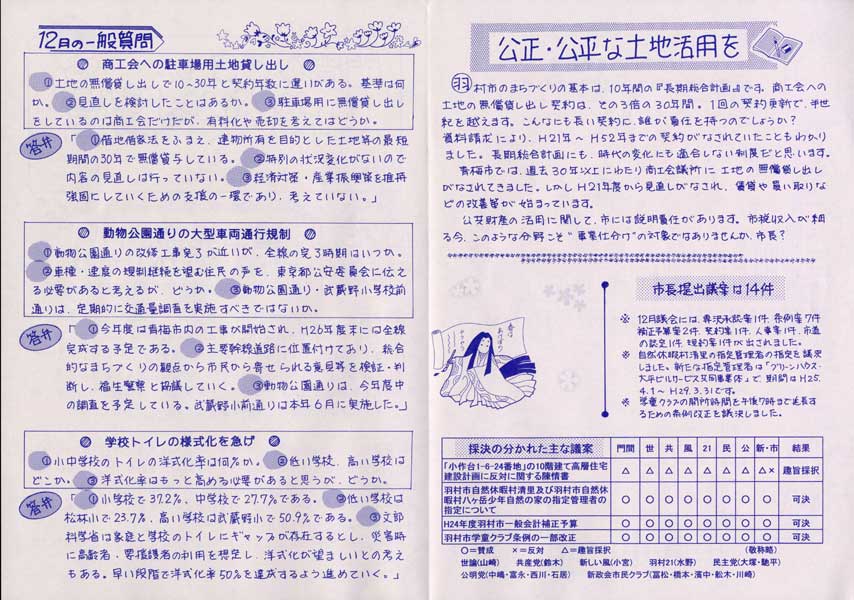 12月の一般質問
商工会への駐車場用土地貸し出し
①土地の無償貸し出しで10~30年と契約年数に違いがある。基準は何
か。②見直しを検討したことはあるか。③駐車場用に無償貸し出し
をしているのは商工会だけだが、有料化や売却を考えてはどうか。
答弁「①借地借家法をふまえ、建物所有を目的とした土地等の最短
期間の30年で無償貸与している。②特別の状況変化がないので
内容の見直しは行っていない。③経済対策・産業振興策を推進
強固にしていくための支援の一環であり、考えていない。」
動物公園通りの大型車両通行規制
①動物公園通りの改修工事完了が近いが、全線の完了時期はいつか。
②車種・速度の規制継続を望む住民の声を、東京都公安委員会に伝え
る必要があると考えるが、どうか。③動物公園通り・武蔵野小学校前
通りは、定期的に交通量調査を実施すべきではないか。
答弁「①今年度は青梅市内の工事が開始され、H26年度末には全線
完成する予定である。②主要幹線道路に位置付けており、総合
的なまちづくりの観点から市民から寄せられる意見等を検証・判
断し、福生警察と協議していく。③動物公園通りは、今年度中
の調査を予定している。武蔵野小前通りは本年6月に実施した。」
学校トイレの様式化を急げ
①小中学校のトイレの洋式化率は何%か。②低い学校、高い学校は
どこか。③洋式化率はもっと高める必要があると思うが、どうか。
答弁「①小学校で37.2%、中学校で27.7%である。②低い学校は
松林小で23.7%、高い学校は武蔵野小で50.9%である。③文部
科学省は家庭と学校のトイレにギャップが存在するとし、災害時
に高齢者・要援護者の利用を想定し、洋式化が望ましいとの考え
もある。早い段階で洋式化率50%を達成するよう進めていく。」
公正・公平な土地活用を
羽村市のまちづくりの基本は、10年間の『長期総合計画』です。商工会への
土地の無償貸し出し契約は、その3倍の30年間。1回の契約更新で、半世
紀を越えます。こんなにも長い契約に、誰が責任を持つのでしょうか?
資料請求により、H21年~H52年までの契約がなされていたこともわかり
ました。長期総合計画にも、時代の変化にも適合しない制度だと思います。
青梅市では、過去30年以上にわたり商工会議所に土地の無償貸し出し
がなされてきました。しかしH21年度から見直しがなされ、賃貸や買い取りな
どの改善策が始まっています。
公共財産の活用に関して、市には説明責任があります。市税収入が細
る今、このような分野こそ“事業仕分け”の対象ではありませんか、市長?
市長提出議案は14件
※ 12月議会には、専決承認案1件、条例案7件
補正予算案2件、契約案1件、人事案1件、市道
の認定1件、規約案1件が出されました。
※ 自然休暇村清里の指定管理者の指定を議決
しました。新たな指定管理者は「グリーンハウス・
太平ビルサービス共同事業体」で、期間はH25.
4.1~H29.3.31です。
※ 学童クラブの開所時間を午後7時まで延長す
るための条例改正を議決しました。
採決の分かれた主な議案 門間 世 共 風 21 民 公 新・市 結果
「小作台1-6-24番地」の10階建て高層住宅
建設計画に反対に関する陳情書 △ △ △ △ △ △ △ △× 趣旨採択
羽村市自然休暇村清里及び羽村市自然休
暇村八ヶ岳少年自然の家の指定管理者の
指定について 〇 〇 〇 〇 〇 〇 〇 〇 可決
H24年度羽村市一般会計補正予算 〇 〇 〇 〇 〇 〇 〇 〇 可決
羽村市学童クラブ条例の一部改正 〇 〇 〇 〇 〇 〇 〇 〇 可決
〇=賛成 ×=反対 △=趣旨採択 (敬称略)
世論(山崎) 共産党(鈴木) 新しい風(小宮) 羽村21(水野) 民主党(大塚・馳平)
公明党(中嶋・富永・西川・石居) 新政会市民クラブ(冨松・橋本・濱中・舩木・川崎)